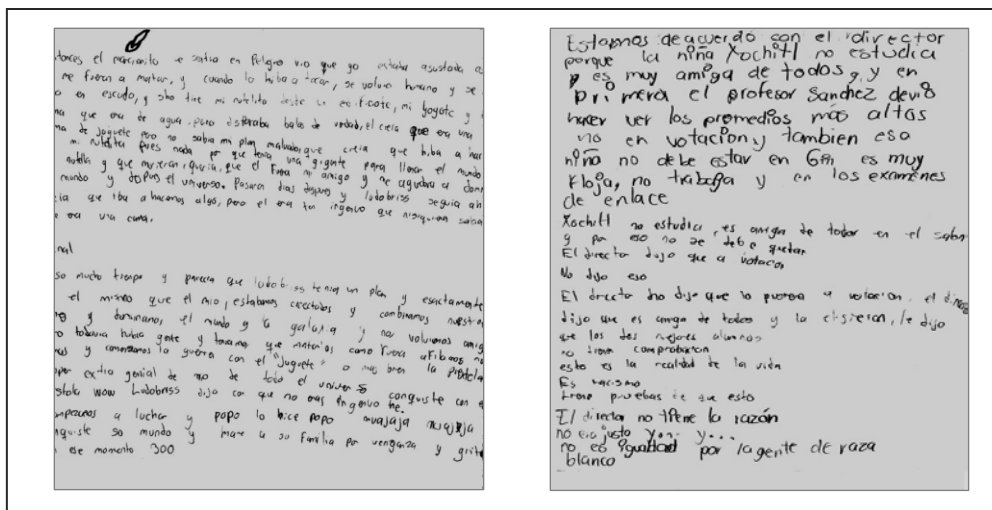 tonces el marcianito se sentia en Peligro vio que yo estaba asustada
me fueron a matar, y cuando lo hiba a tocar, se volvio humano y se
o en escudo, y sho tire mi nutelita
na que era de agua pero disparaba balas de verdad, el creia que era una
ma de juguete pero no sabia mi plan malvado, que creia que hiba a
mi nutelita pues nada por que tenia una gigante para llenar el mundo
nutella y que murieran, queria, que el fuera mi amigo y me ayudara a
mundo y dspues el universo. Pasaron dias dspues y ladobriss seguia
cia que iba a hacernos algo, pero el era tan ingenuo que nisiquiera sabia
era una
nal
so mucho tiempo y parecia que ladobriss tenia un plan y esactamente
el mismo que el mio, estabamos conectados y combinamos nuestros
y dominamos, el mundo y la galaxia y nos volvimos
todavia habia gente y teniamos que matarlos como fuera
y comenzamos la guerra con el "juguete" o mas bien la pistola
extra genial de de todo el univer conquiste con
stola wow Ladobriss dijo que no eras ingenuo
mpezamos a luchar y popo lo hice popo muajaja muajaja
nquiste so mundo y mate a su familia por venganza y
ese momento 300
Estamos deacuerdo con el director
porque la niña Xochitl no estudia
y es muy amiga de todos, y en
primera el profesor Sanchez devio
hacer ver los promedios más altos
no en votación y tambien esa
niña no debe estar en 6th es muy
floja, no trabaja y en los exámenes
de enlace
Xochitl no estudia, es amiga de todos en el salon
y por eso no se debe quedar
El director dijo que a votacion
No dijo eso
El director dijo que lo pusieron a votacion. el director
dijo que es amiga de todos y la eligieron, le dijo
que los dos mejores alumnos
no tiene comprobacion
esto es la realidad de la vida
Es racismo
tengo pruebas de que esto
El director no tiene la razón
no era justo y... y...
no es igualdad por la gente de raza
blanco